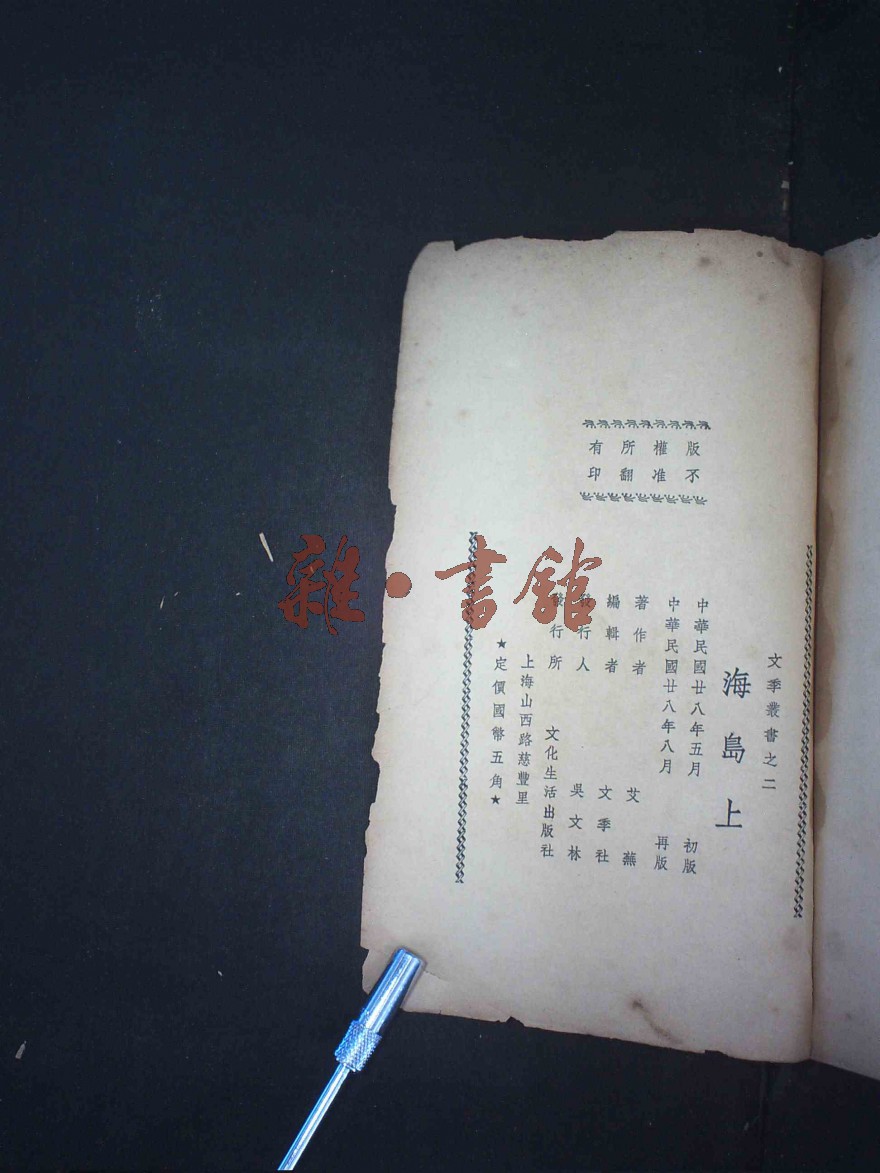 版權所有
不准翻印
文季叢書之二
海島上
中華民國廿八年五月 初版
中華民國廿八年八月 再版
著作者 艾蕪
編輯者 文季社
發行人 吳文林
發行所 文化生活出版社
上海山西路慈豐里
★定價國幣五角★
雜·書館